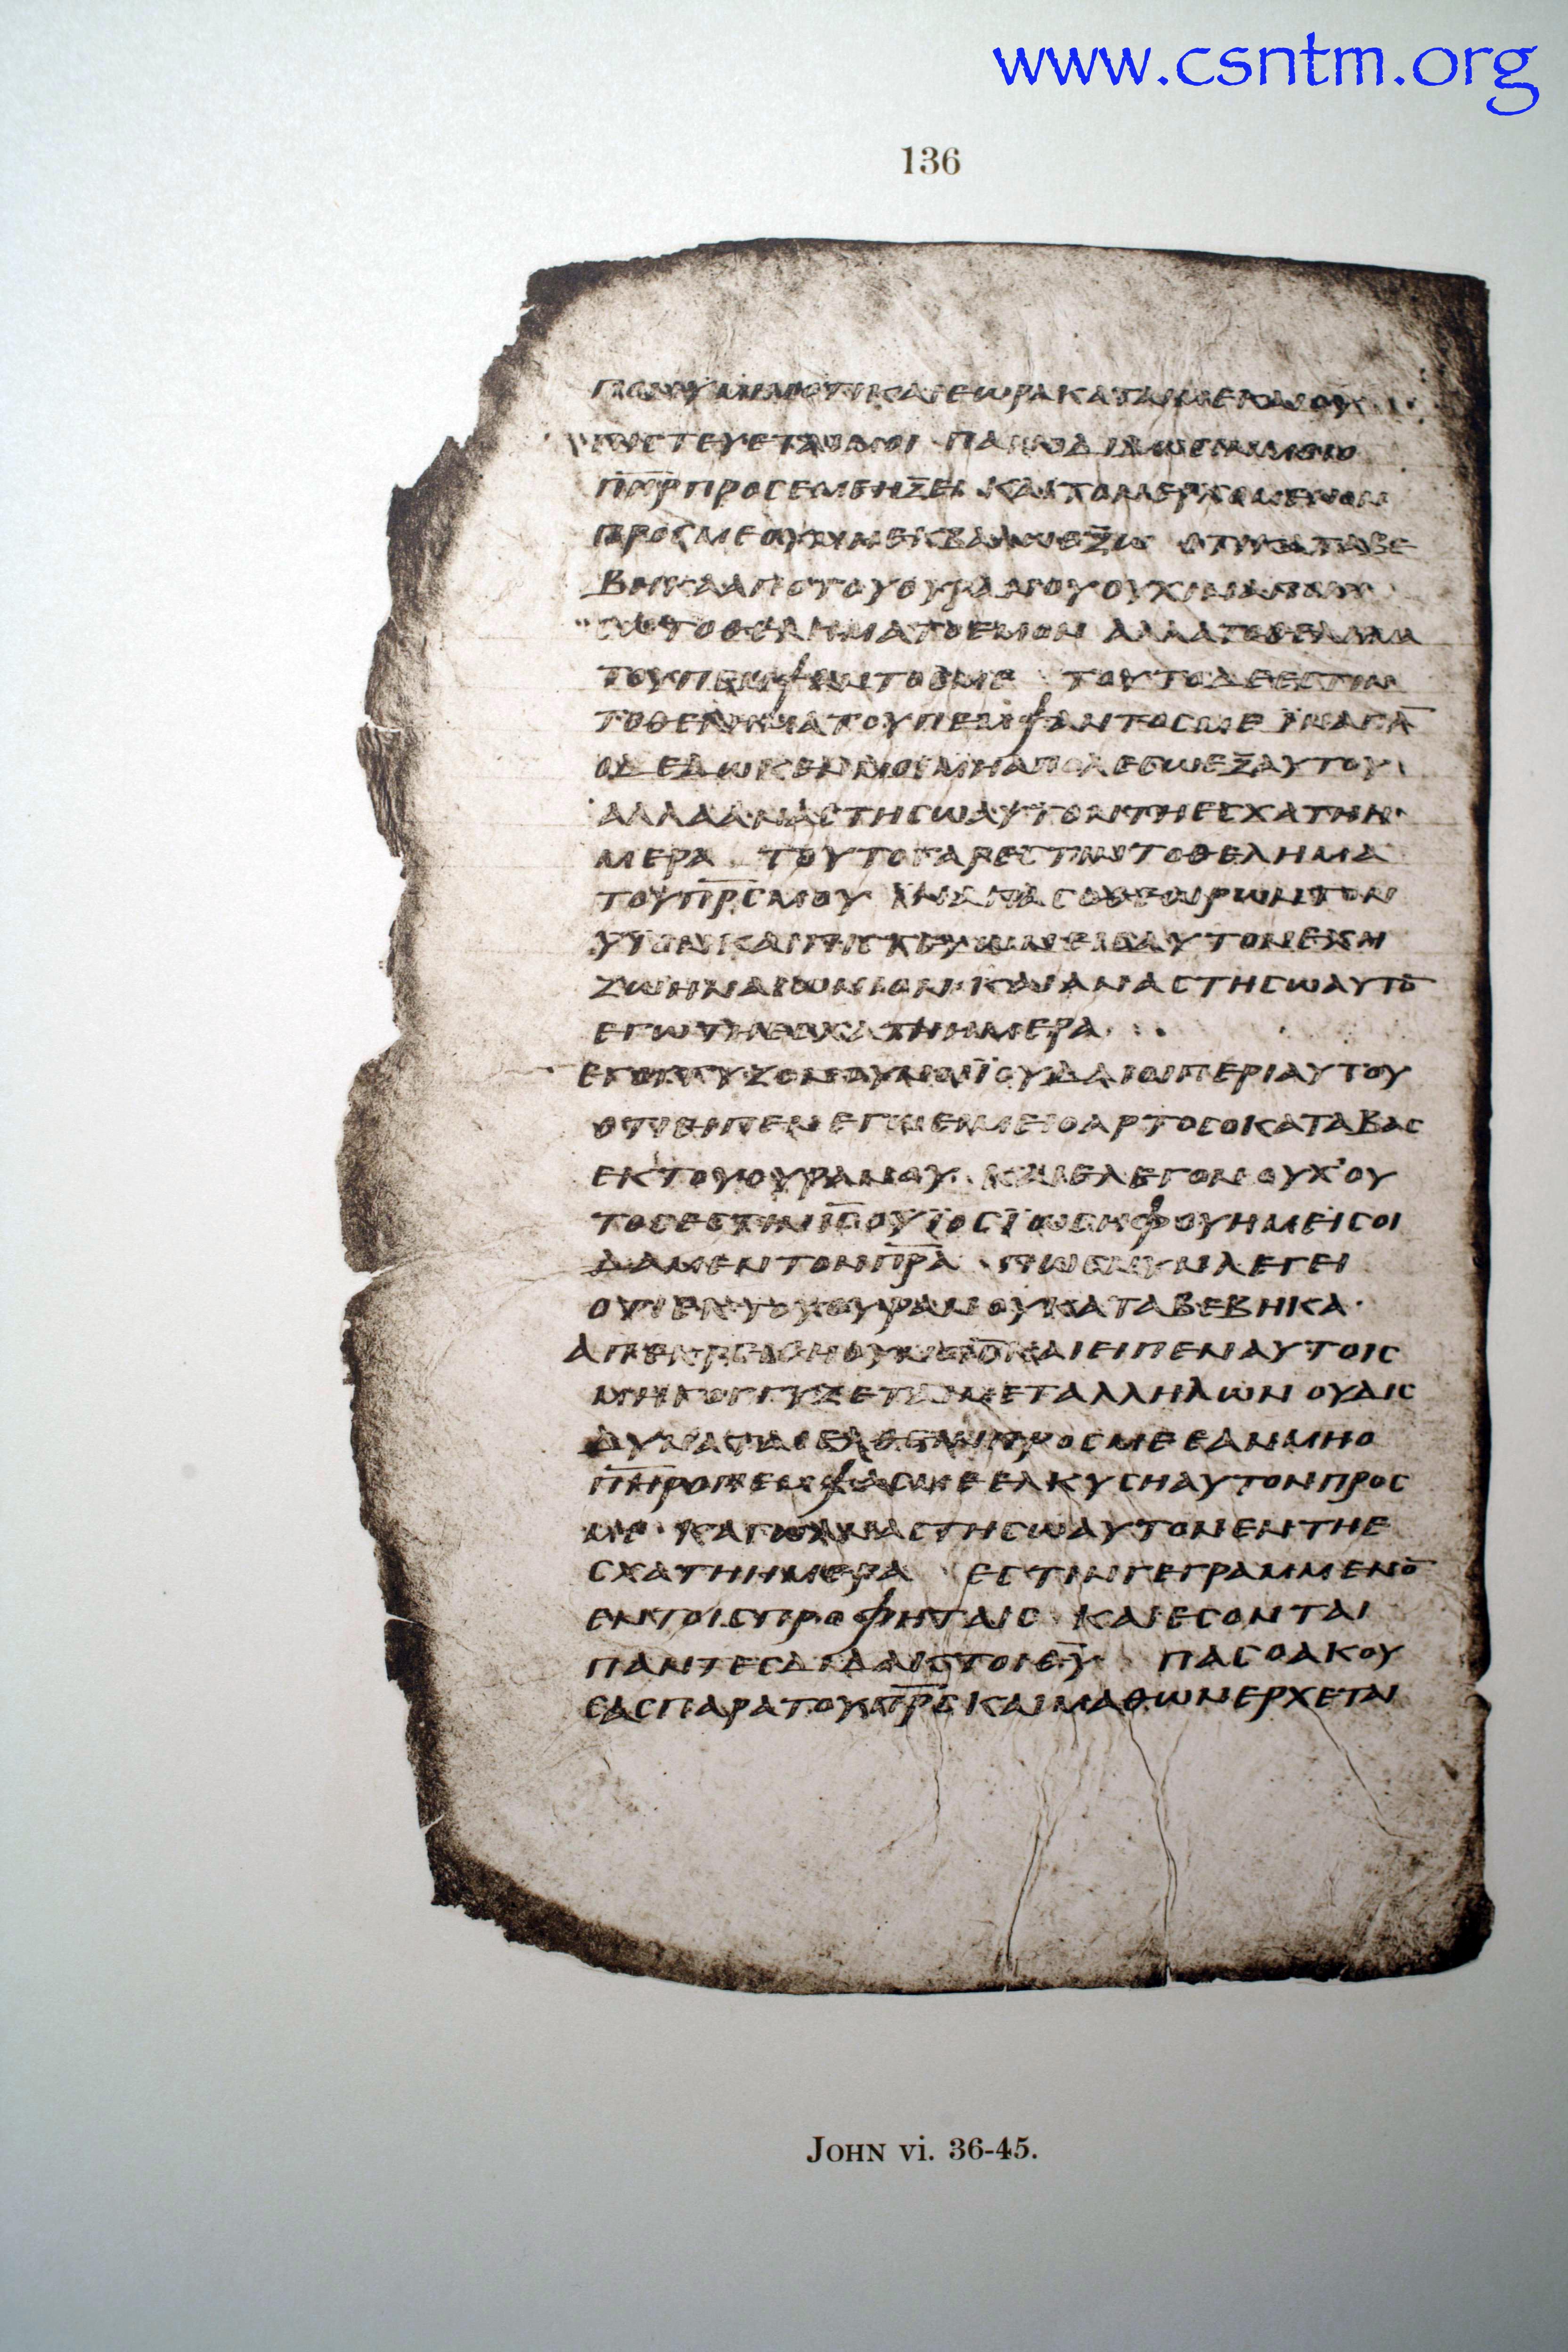 www.csntm.org
136
ΥΜΙΝΟΤΙΚΑΙΕωΡΑΚΑΤΑΙΜΕΚΑΙΟΥ
ΠΙCΤΕΥΕΤΑΙΜΟΙ ΠΑΝΟΔΙΔωCΙΝΜΟΙΟ
Π̅Η̅Ρ̅ΠΡΟCΕΜΕΗΞΕΙ ΚΑΙΤΟΝΕΡΧΟΜΕΝΟΝ
ΠΡΟCΜΕΟΥΜΗΕΚΒΑΛωΕΞω ΟΤΙΚΑΤΑΒΕ
ΒΗΚΑΑΠΟΤΟΥΟΥΡΑΝΟΥΟΥΧΙΝΑΠΟΙΗ
CωΤΟΘΕΛΗΜΑΤΟΕΜΟΝ ΑΛΛΑΤΟΘΕΛΗΜΑ
ΤΟΥΠΕΜΨΑΝΤΟCΜΕ ΤΟΥΤΟΔΕΕCΤΙΝ
ΤΟΘΕΛΗΜΑΤΟΥΠΕΜΨΑΝΤΟCΜΕ ΪΝΑΠΑ̅
ΟΔΕΔωΚΕΝΜΟΙΜΗΑΠΟΛΕCωΕΞΑΥΤΟΥ
ΑΛΛΑΑΝΑCΤΗCωΑΥΤΟΝΤΗΕCΧΑΤΗΗ
ΜΕΡΑ ΤΟΥΤΟΓΑΡΕCΤΙΝΤΟΘΕΛΗΜΑ
ΤΟΥΠ̅Ρ̅C̅ΜΟΥ ΙΝΑΠΑCΟΘΕωΡωΝΤΟΝ
ΥΪΟΝΚΑΙΠΙCΤΕΥωΝΕΙCΑΥΤΟΝΕΧΗ
ΖωΗΝΑΙωΝΙΟΝ ΚΑΙΑΝΑCΤΗCωΑΥΤΟ̅
ΕΓωΤΗΕCΧΑΤΗΗΜΕΡΑ
ΕΓΟΓΓΥΖΟΝΟΥΝΟΙΪΟΥΔΑΙΟΙΠΕΡΙΑΥΤΟΥ
ΟΤΙΕΙΠΕΝΕΓωΕΙΜΕΙΟΑΡΤΟCΟΚΑΤΑΒΑC
ΕΚΤΟΥΟΥΡΑΝΟΥ ΚΑΙΕΛΕΓΟΝΟΥΧ'ΟΥ
ΤΟCΕCΤΙΝΙ̅C̅ΟΥΪΟCΪωCΗΦΟΥΗΜΕΙCΟΙ
ΔΑΜΕΝΤΟΝΠ̅Ρ̅Α̅ ΠωCΟΥΝΛΕΓΕΙ
ΟΤΙΕΚΤΟΥΟΥΡΑΝΟΥΚΑΤΑΒΕΒΗΚΑ
ΑΠΕΚΡΙΘΗΟΥΝΟΙ̅C̅ΚΑΙΕΙΠΕΝΑΥΤΟΙC
ΜΗΓΟΓΓΥΖΕΤΕΜΕΤΑΛΛΗΛωΝ ΟΥΔΙC
ΔΥΝΑΤΑΙΕΛΘΕΙΝΠΡΟCΜΕΕΑΝΜΗΟ
Π̅Η̅Ρ̅ΟΠΕΜΨΑCΜΕΕΛΚΥCΗΑΥΤΟΝΠΡΟC
ΜΕ ΚΑΓωΑΝΑCΤΗCωΑΥΤΟΝΕΝΤΗΕ
CΧΑΤΗΗΜΕΡΑ ΕCΤΙΝΓΕΓΡΑΜΜΕΝΟ̅
ΕΝΤΟΙCΠΡΟΦΗΤΑΙC ΚΑΙΕCΟΝΤΑΙ
ΠΑΝΤΕCΔΙΔΑΚΤΟΙΘ̅Υ̅ ΠΑCΟΑΚΟΥ
CΑCΠΑΡΑΤΟΥΠ̅Ρ̅C̅ΚΑΙΜΑΘωΝΕΡΧΕΤΑΙ
John vi. 36-45.